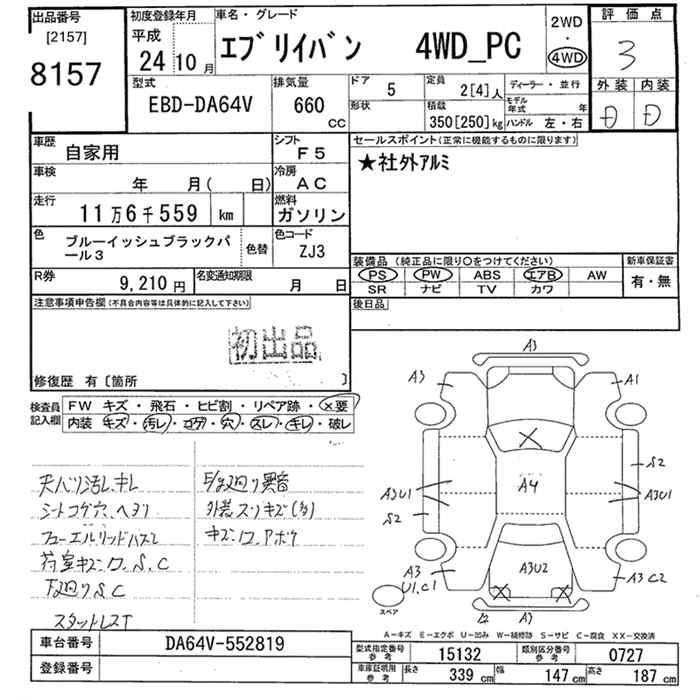 出品番号 初度登録年月 車名・グレード 2WD 評価点
[2157] 平成 エブリイバン 4WD_PC ・ 3
8157 24 10 月 4WD
型式 排気量 ドア 5 定員 2[4]人 ディーラー・並行 外装 内装
EBD-DA64V 660 CC 形状 積載 350[250]kg モデル年式 年 D D
ハンドル 左・右
車歴 自家用 シフト F5 セールスポイント(正常に機能するものに限ります)
車検 年 月( 日) 冷房 AC ★社外アルミ
走行 11万6千559 km 燃料 ガソリン
色 ブルーイッシュブラックパール3 色替 色コード ZJ3
装備品(純正品に限り○をつけてください) 新車保証書
PS PW ABS エアB AW 有・無
R券 9,210円 名変通知期限 月 日 SR ナビ TV カワ
注意事項申告欄(不具合内容等は具体的に記入して下さい) 後日品
初出品
修復歴 有〔箇所 〕
検査員記入欄 FW キズ・飛石・ヒビ割・リペア跡・×要
内装 キズ・汚レ・コゲ・穴・スレ・キレ・破レ
天バリ汚レ、キレ
シートコゲ穴、ヘタリ
フューエルリッドハズレ
荷室キズ、ワ、S、C
下廻りS、C
スタットレスT
外装スリキズ(多)
キズ、ワ、アポケ
A3
A3 A1
S2
A3U1 A4 A3U1
S2
A3 A3U2 A3C2
U1.C1
スペア
A-キズ E-エクボ U-凹み W-補修跡 S-サビ C-腐食 XX-交換済
車台番号 DA64V-552819 型式指定番号 参考 15132 類別区分番号 参考 0727
登録番号 車庫証明用 参考 長さ 339 cm 幅 147 cm 高さ 187 cm